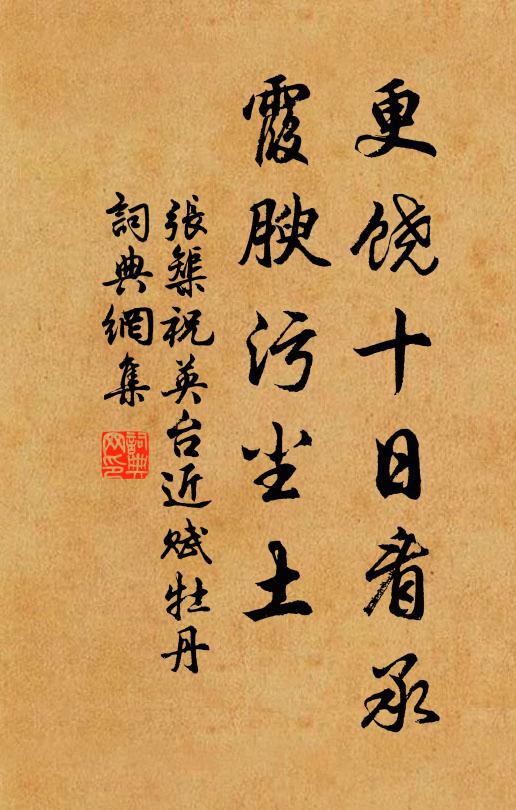 更饶十日看承
霞腴污尘土
張榘祝英台近赋牡丹
詞典網集
詞典网印